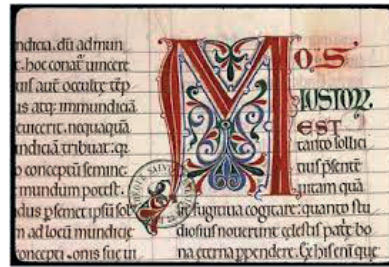 ndicia. dū ad mun
t. hoc conat̄ uincere
uis aut occulte tēp
us atq; immundiciā
euicerit. nequaquā
ndiciā tribuat: qr
o conceptū semine.
mundum potest.
dus psemet ipsū sol
m ad locū mundicie
oncepti. onis sue ui
MOS
IUSTOR
EST
tanto sollici
tius psentē
uitam quā
fugitiua cogitare: quanto stu
diosius nouerunt celestis patr̄e bo
na eterna ppendere. Ex his eni que